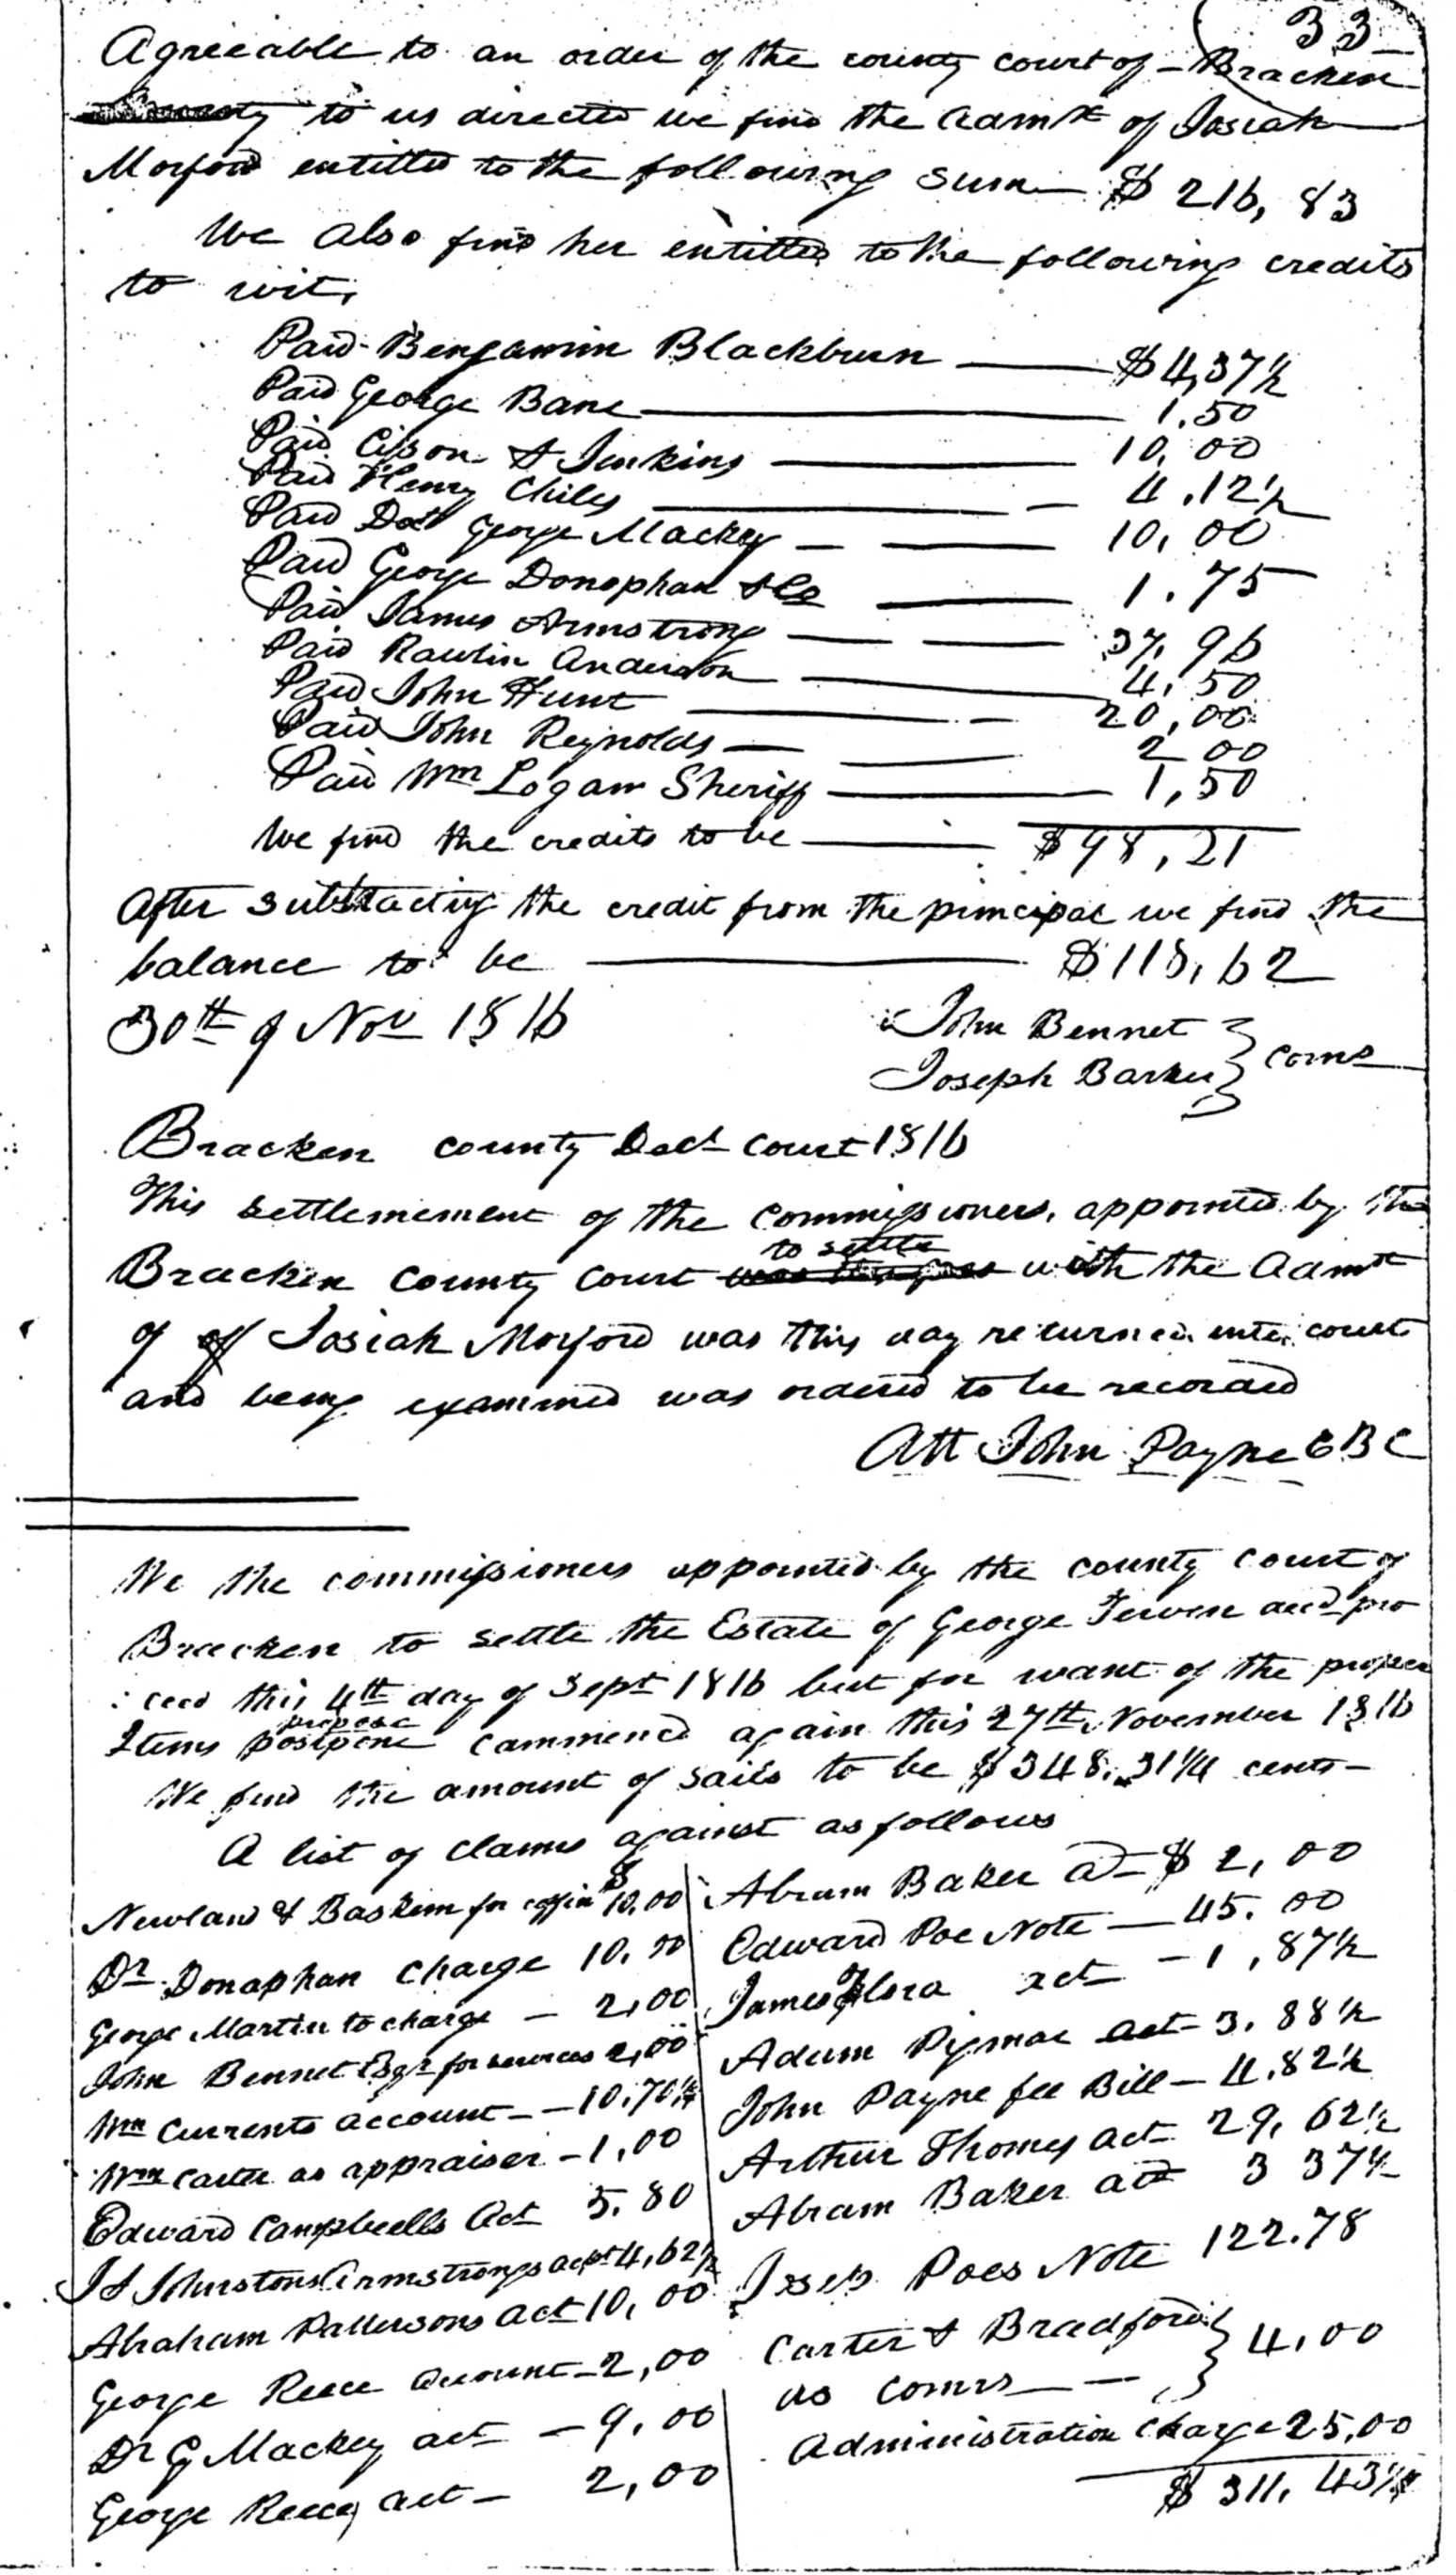 33
Agreeable to an order of the county court of Bracken
to us directed we find the admx of Josiah
Morford entitled to the following sum $ 216, 83
We also find her entitled to the following credits
to wit,
Paid Benjamin Blackburn $4,37½
Paid George Bane 1.50
Paid Cison & Jenkins 10,00
Paid Henry Chiles 4,12½
Paid Doct George Mackey 10,00
Paid George Donophan & Co 1.75
Paid James Armstrong 37,96
Paid Rawlin Anderson 4,50
Paid John Hunt 20,00
Paid John Reynolds 2 00
Paid Wm Logan Sheriff 1,50
We find the credits to be $98,21
After substracting the credit from the principal we find the
balance to be $118,62
30th of Nov 1816
John Bennet } coms
Joseph Barker }
Bracken county Dect court 1816
This settlemement of the commissioners, appointed by the
to settle
Bracken county court with the admx
of Josiah Morford was this day returned into court
and being examined was ordered to be recorded
Att John Payne CBC
We the commissioners appointed by the county court of
Bracken to settle the Estate of George decd pro
ceed this 4th day of Sept 1816 but for want of the proper
Items postpone commencd again this 27th November 1816
We find the amount of sails to be $348.31¼ cents
A list of claims against as follows
Newland & Baskem for coffin $10.00
Dr Donaphan charge 10.00
George Martin to charge 2,00
John Bennet Esqr for services 2,00
Wm Currents account 10.70¼
Wm Carter as appraiser 1,00
Edward Campbells Act 5.80
Johnstons Armstrongs acpt 4,62½
Abraham Pattersons act 10,00
George Reece account 2,00
Dr G Mackey act 9.00
George Reecy act 2,00
Abram Baker a $ 2,00
Edward Poe Note 45.00
James Flora act 1,87½
Adam Pymac act 3.88½
John Payne fee Bill 4.82½
Arthur Thomes act 29,62½
Abram Baker act 3 37½
Poes Note 122.78
Carter & Bradford } 4,00
as comrs }
Administration charge 25,00
$ 311.43¼